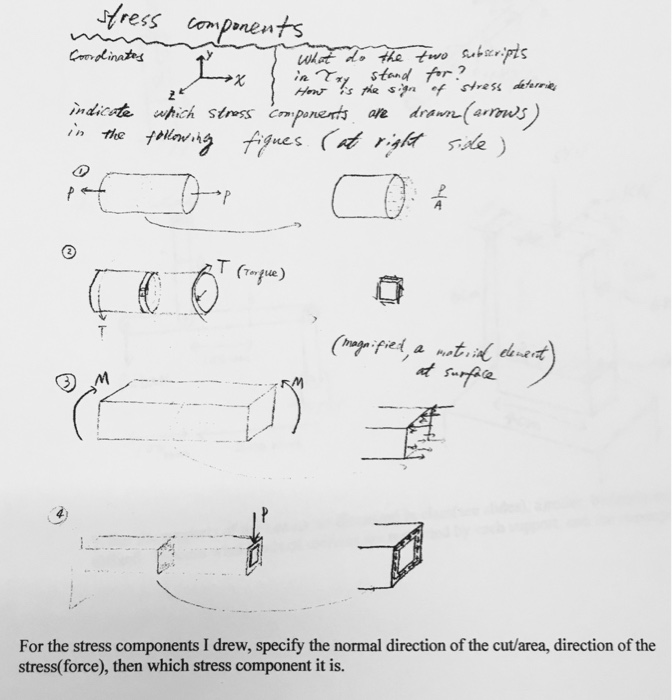 stress components
Coordinates
y
x
z
What do the two subscripts
in τxy stand for?
How is the sign of stress determine
indicate which stress components are drawn (arrows)
in the following figues (at right side)
①
P
P
P
A
②
T (Torque)
T
(magnified, a material element
at surface)
③ M
M
④
P
For the stress components I drew, specify the normal direction of the cut/area, direction of the
stress(force), then which stress component it is.